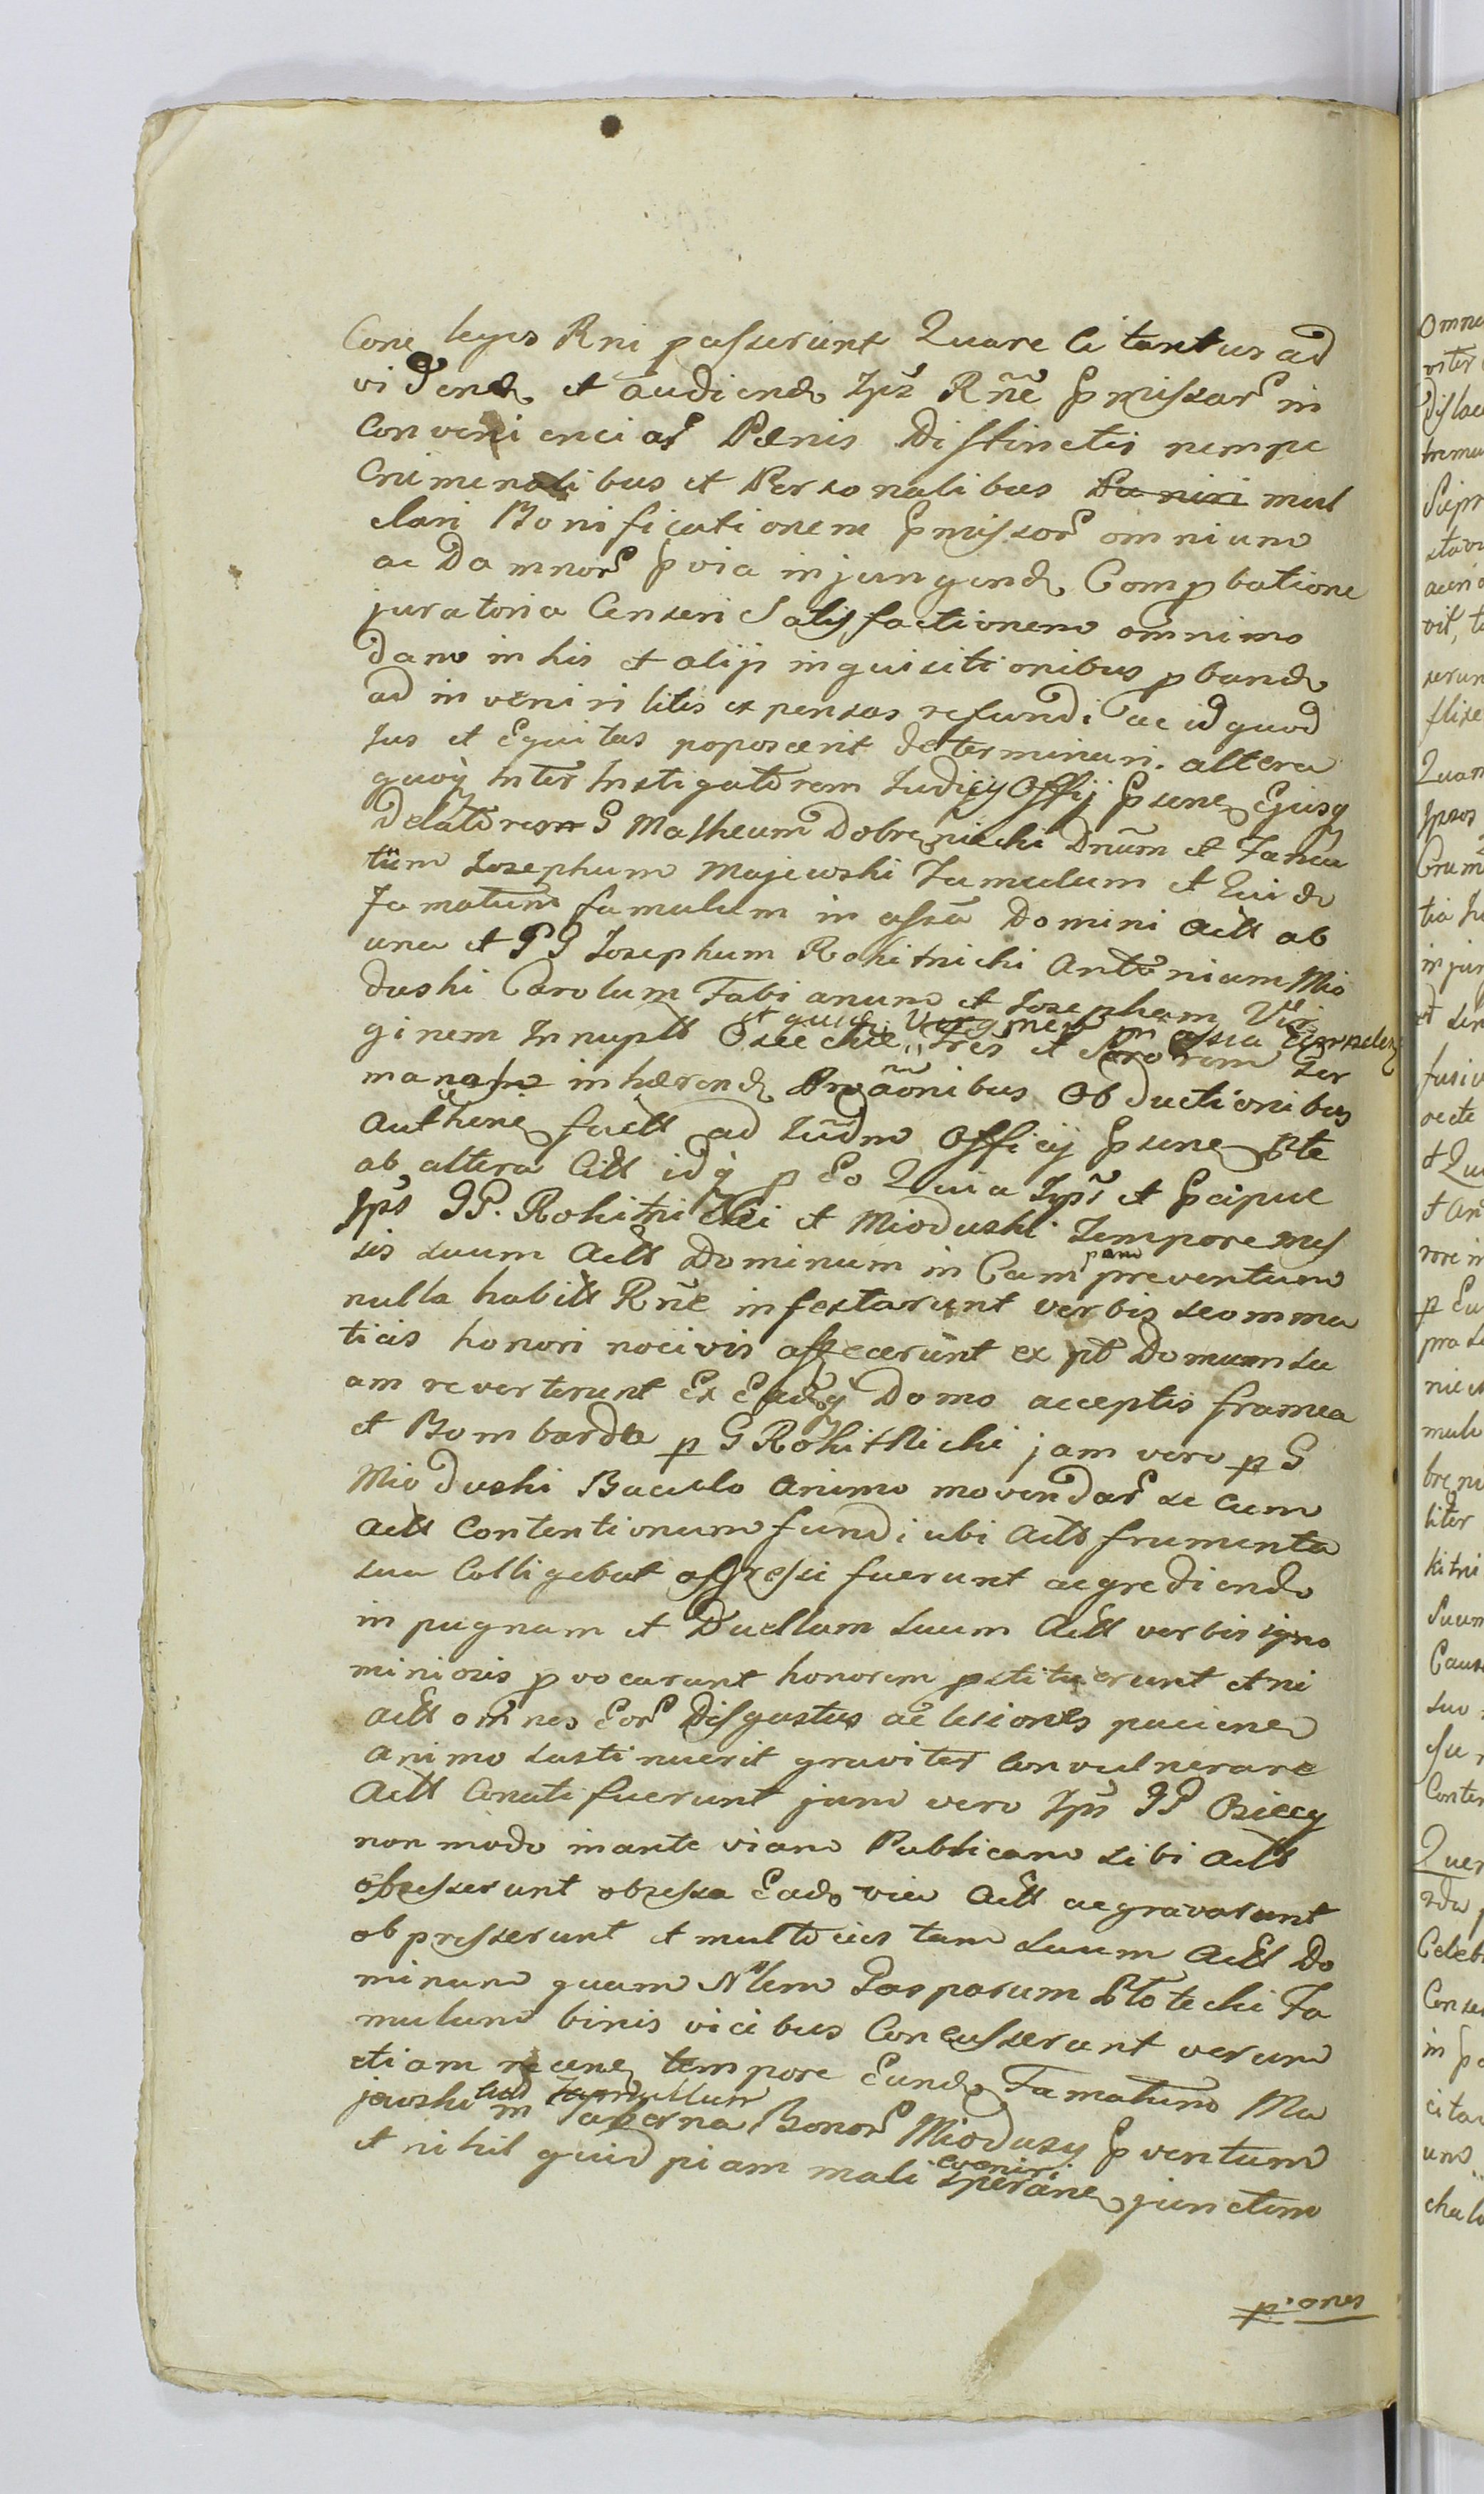 Cone leges Rni passerunt Quare Citantur ad
vidend et audiend Ips Rñe pmissar in
Convenienciar Pænis Distinctis nempe
Crimenalibus et Personalibus Puniri mul
ctari Bonificationem pmissor omnium
ac Damnor pvia injungend Compbatione
juratoria Censeri Satisfactionem omnimo
dam in his et alijs inquisitionibus pband
ad inveniri litis expensas refundi ac id quod
Jus et Equitas poposcerit determinari. altera
quoq Inter Instigatorem Judicij Officij psene Ejusq
Delatorem G Matheum Dobrzniecki Dnum et Fama
tum Josephum Majewski Famulum et Quid
Famatum famulum in assa Domini Actt ab
una et PG Josephum Rokitnicki Antonium Mio
duski Carolum Fabianum et Josepham Vir
et quid Virginem in assia
ginem Innuptt Osieckie Fres et Sororem Ger
manam inhærend Proaõnibus Obductionibus
Authene factt ad Judm Officij psene pte
ab altera Citt idq p Eo Quia Ips et pcipue
Ips PP. Rokitnicki et Mioduski Tempore mes
sis suum Actt Dominum in Cam pam preventum
nulla habitt Rñe infestarunt verbis scomma
ticis honori nocivis affecerunt ex pt Domum su
am reverterunt Ex Eadq Domo acceptis framea
et Bombarda p G Rokitnicki jam vero p G
Mioduski Baculo animo movendar se cum
Actt Contentionum fundi ubi Actt frumenta
sua Colligebat aggressi fuerunt aegrediendo
in pugnam et Duellum suum Actt verbis igno
miniosis pvocarunt honorem pstituerunt et ni
Actt omnes Eor Disgustus ac lesiones paciene
animo sustinuerit graviter convulnerare
Actt Conati fuerunt jam vero Ips PP Osieccy
non modo in ante viam Publicam sibi Actt
obsesserunt obsessa Eadq via Actt aegravarunt
oppresserunt et multocies tam suum Actt Do
minum quam Nlem Gasparum Płotecki Fa
mulum binis vicibus Concusserunt verum
etiam recene tempore Eund Famatum Ma
jewski in Taberna Bonor Mioduszy pventum
et nihil quid piam mali eveniri sperane junctim
p.ones